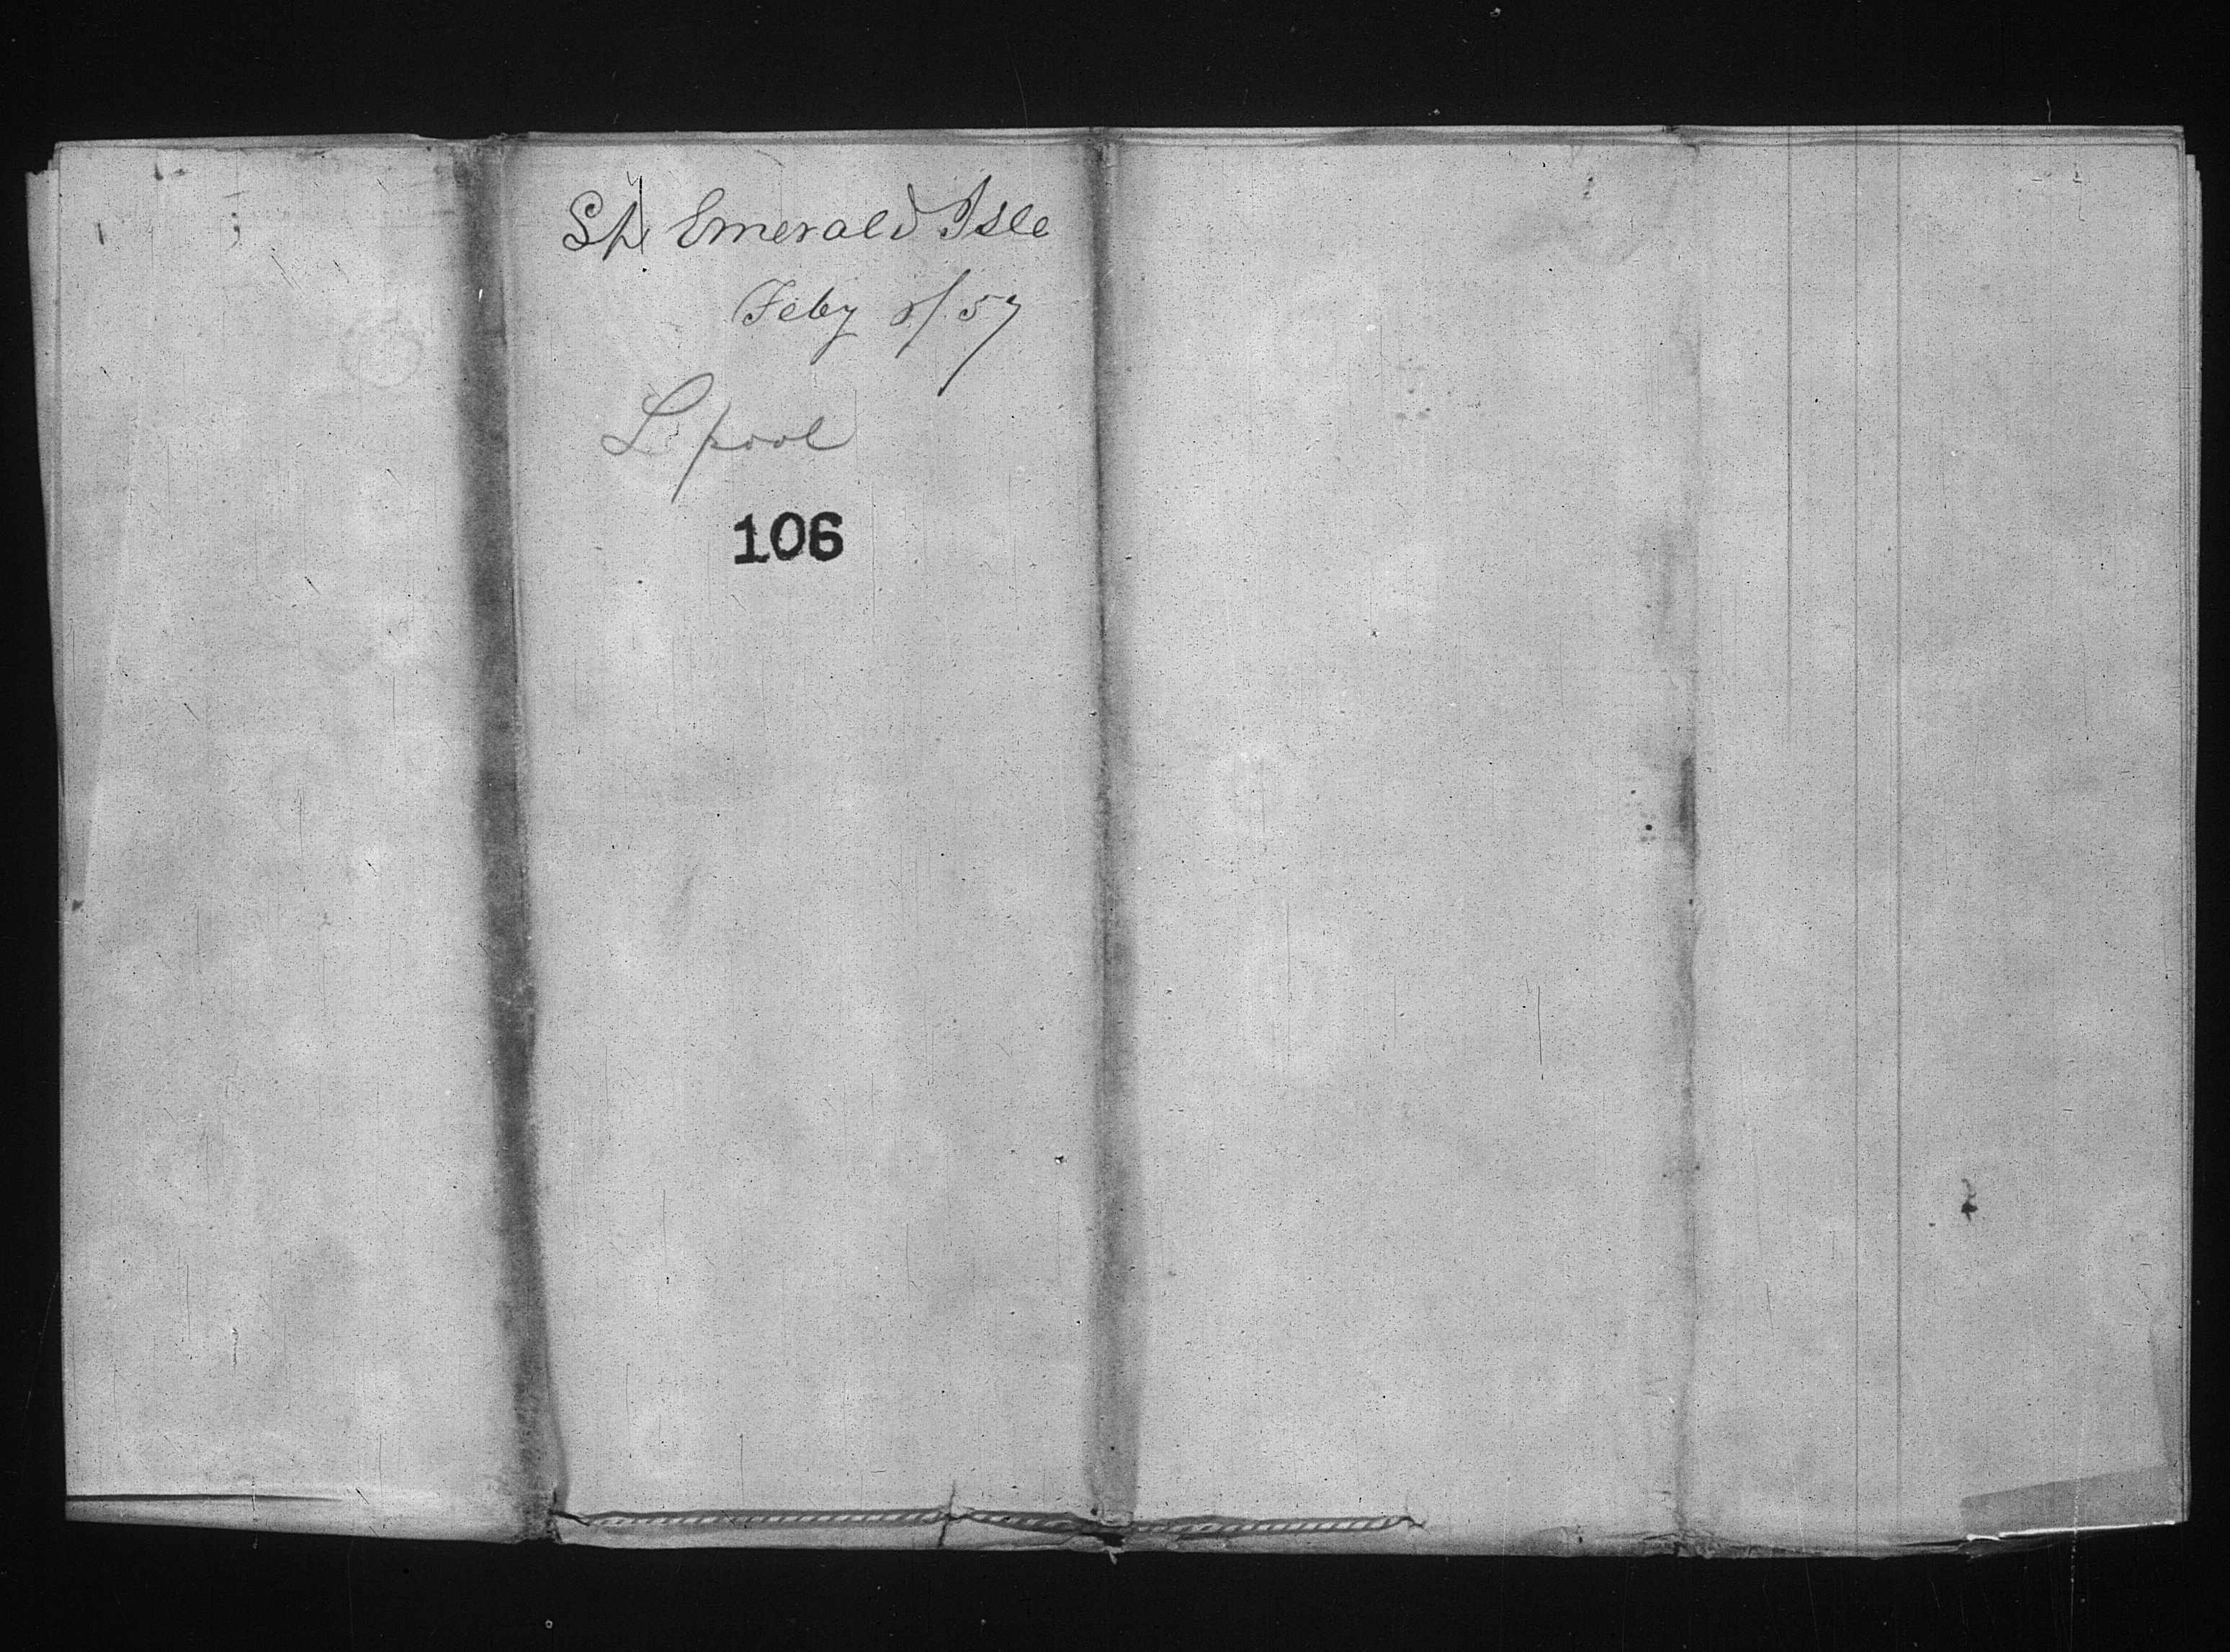 Sh Emerald Isle
Feby 8/57
L.pool
106